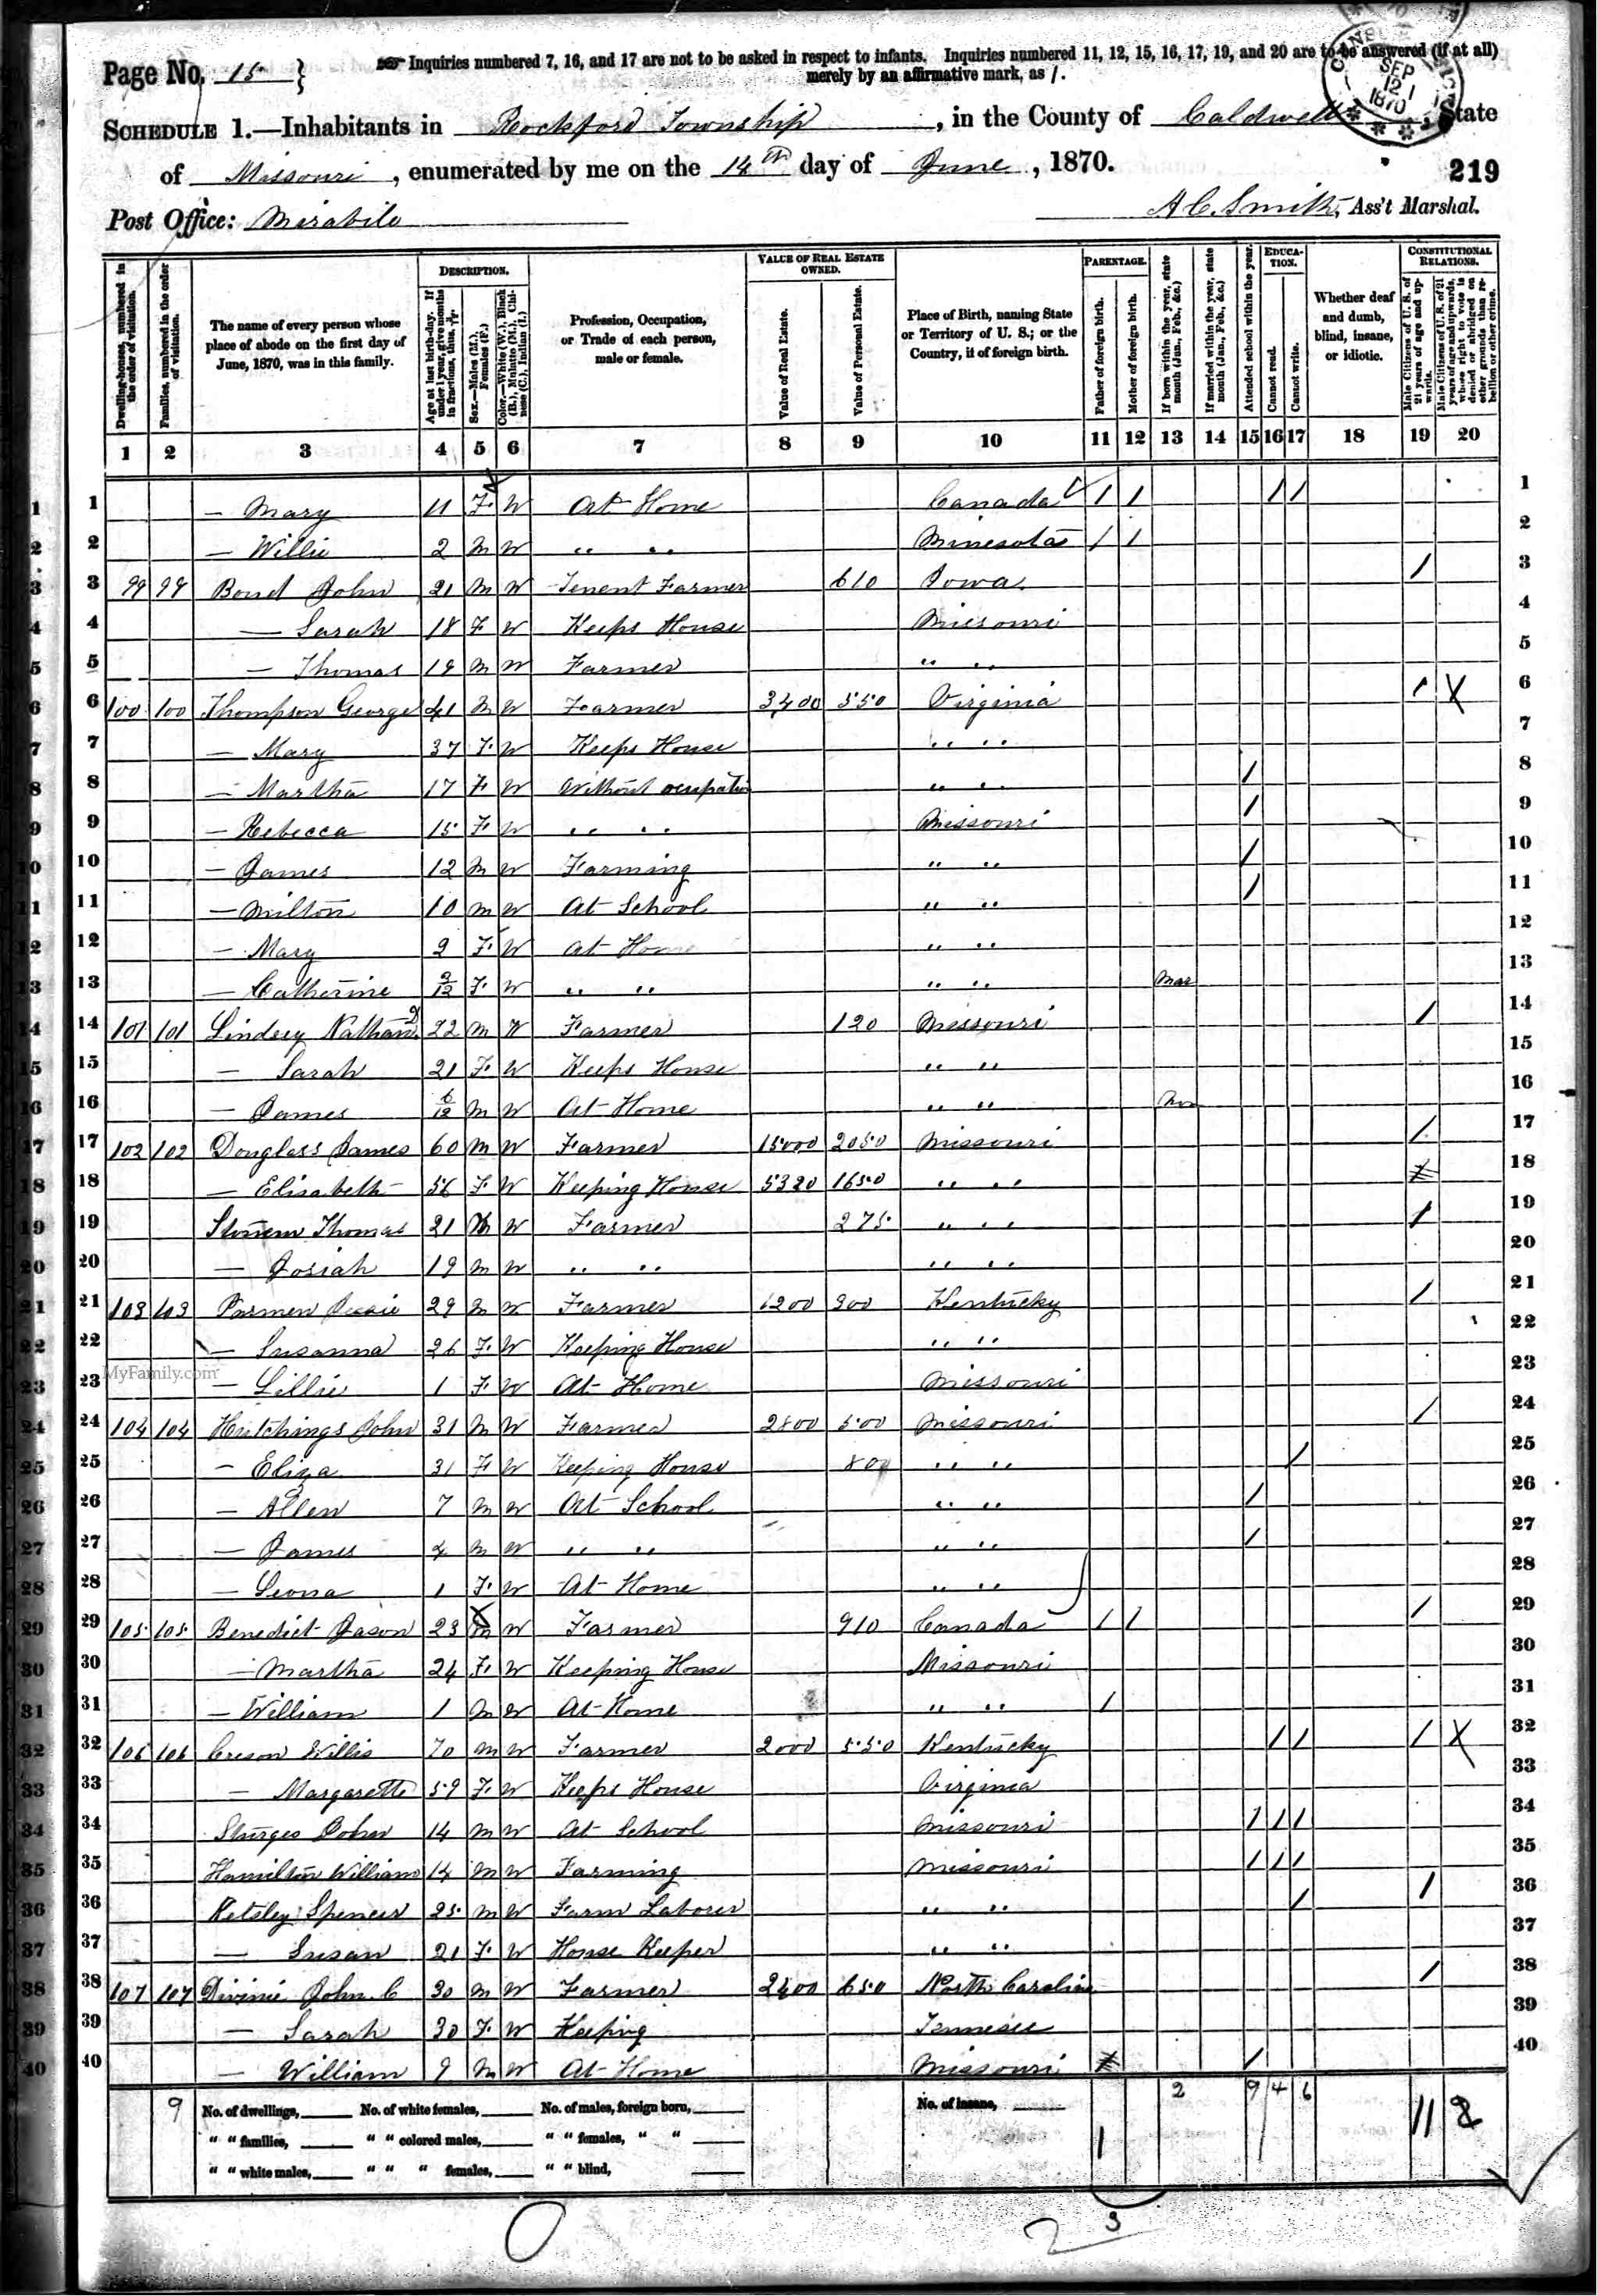 Page No. 15
Inquiries numbered 7, 16, and 17 are not to be asked in respect to infants. Inquiries numbered 11, 12, 15, 16, 17, 19, and 20 are to be answered (if at all)
merely by an affirmative mark, as /.
SEP 12 1870
SCHEDULE 1.—Inhabitants in Rockford Township, in the County of Caldwell, State
of Missouri, enumerated by me on the 14th day of June, 1870.
219
Post Office: Mirabile
A C. Smith, Ass't Marshal.
Dwelling-houses, numbered in the order of visitation.
Families, numbered in the order of visitation.
The name of every person whose place of abode on the first day of June, 1870, was in this family.
DESCRIPTION.
Age at last birth-day. If under 1 year, give months in fractions, thus,
Sex.—Males (M.), Females (F.)
Color.—White (W.), Black (B.), Mulatto (M.), Chinese (C.), Indian (I.)
Profession, Occupation, or Trade of each person, male or female.
VALUE OF REAL ESTATE OWNED.
Value of Real Estate.
Value of Personal Estate.
Place of Birth, naming State or Territory of U. S.; or the Country, if of foreign birth.
PARENTAGE.
Father of foreign birth.
Mother of foreign birth.
If born within the year, state month (Jan., Feb., &c.)
If married within the year, state month (Jan., Feb., &c.)
Attended school within the year.
EDUCATION.
Cannot read.
Cannot write.
Whether deaf and dumb, blind, insane, or idiotic.
CONSTITUTIONAL RELATIONS.
Male Citizens of U. S. of 21 years of age and upwards.
Male Citizens of U. S. of 21 years of age and upwards, whose right to vote is denied or abridged on other grounds than rebellion or other crime.
1 2 3 4 5 6 7 8 9 10 11 12 13 14 15 16 17 18 19 20
1 — Mary 11 F W At Home Canada / / / / 1
2 — Willie 2 M W " " Minesota / / 2
3 99 99 Bond John 21 M W Tenent Farmer 610 Iowa / 3
4 — Sarah 18 F W Keeps House Missouri 4
5 — Thomas M W Farmer " " 5
6 100 100 Thompson George 41 M W Farmer 3400 550 Virginia / X 6
7 — Mary 37 F W Keeps House " " 7
8 — Martha 17 F W Without occupation " " / 8
9 — Rebecca 15 F W " " Missouri / 9
10 — James 12 M W Farming " " / 10
11 — Milton 10 M W At School " " / 11
12 — Mary 2 F W At Home " " 12
13 — Catherine F W " " " " Mar 13
14 101 101 Lindsey Nathan D 22 M W Farmer 120 Missouri / 14
15 — Sarah 21 F W Keeps House " " 15
16 — James 6/12 M W At Home " " 16
17 102 102 Douglass James 60 M W Farmer 15000 2050 Missouri / 17
18 — Elisabeth 56 F W Keeping House 5320 1650 " " 18
19 Thomas 21 M W Farmer 275 " " / 19
20 — Josiah 19 M W " " " " 20
21 103 103 29 M W Farmer 1200 300 Kentucky / 21
22 — Susanna 26 F W Keeping House " " 22
MyFamily.com
23 — Lillie 1 F W At Home Missouri 23
24 104 104 Hutchings John 31 M W Farmer 2800 500 Missouri / 24
25 — Eliza 31 F W Keeping House 800 " " / 25
26 — Allen 7 M W At School " " / 26
27 — James 4 M W " " " " / 27
28 — Leona 1 F W At Home " " 28
29 105 105 Benedict Jason 23 M W Farmer 910 Canada / / / 29
30 — Martha 24 F W Keeping House Missouri 30
31 — William 1 M W At Home " " / 31
32 106 106 Creson Willis 70 M W Farmer 2000 550 Kentucky / / / X 32
33 — Margarette 59 F W Keeps House Virginia 33
34 Sturges John 14 M W At School Missouri / / / 34
35 Hamilton William 14 M W Farming Missouri / / / 35
36 Ketsley Spencer 25 M W Farm Laborer " " / / 36
37 — Susan 21 F W House Keeper " " 37
38 107 107 Divinie John C 30 M W Farmer 2400 650 North Carolina / 38
39 — Sarah 30 F W Keeping Tennesee 39
40 — William 9 M W At Home Missouri / 40
9 No. of dwellings, No. of white females, No. of males, foreign born, No. of insane, 2 9 4 6 11 2
" " families, " " colored males, " " females, " " 1
" " white males, " " " females, " " blind,
0 2 3